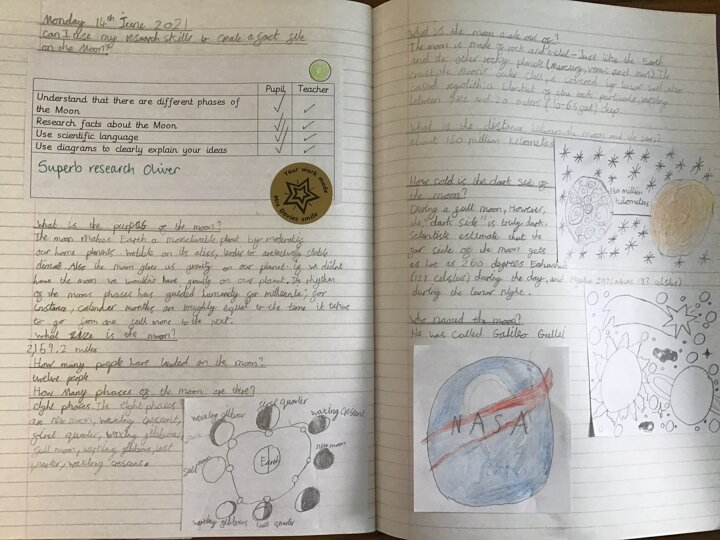 Monday 14th June 2021
Can I use my research skills to create a fact file
on the Moon?
Pupil Teacher
Understand that there are different phases of
the Moon.
Research facts about the Moon
Use scientific language
Use diagrams to clearly explain your ideas
Superb research Oliver
Your work made
Mrs Davies smile
What is the purpos of the moon?
The moon makes Earth a more livable planet by moderating
our home planets wobble on its axis, leading to a relatively stable
climate. Also the moon give us gravity on our planet is we didnt
have the moon we wouldn't have gravity on our planet. In rhythm
of the moons phases has guided humanity for millennia; for
instance, calendar months are roughly equal to the time it takes
to go from one full moon to the next.
What size is the moon?
2,159.2 miles
How many people have landed on the moon?
twelve people
How Many phases of the moon are there?
eight phases. The eight phases
are new moon, waxing crescent,
first quarter, waxing gibbous,
full moon, waning gibbous, last
quarter, waning crescent.
waxing gibbous
first quarter
waxing crescent
new moon
full moon
Earth
waning gibbous
last quarter
What is the moon made out of?
The moon is made of rock and metal - Just like the Earth
and the other rocky planets (Mercury, venus and mars). The
crust, the Moon's outer shell, is covered by lunar soil, also
called regolith: a blanket of fine rock particles, varying
between three and 20 meters (10-65 feet) deep.
What is the distance between the moon and the sun?
about 150 million kilometres
150 million
kilometres
How cold is the dark side of
the moon?
During a full moon, However,
the "dark side" is truly dark.
Scientists estimate that the
far side of the moon gets
as hot as 260 degrees Fahrenheit
(127 Celsius) during the day, and negative 297 (minus 183 celsius)
during the lunar night.
Who named the moon?
He was called Galileo Galilei
NASA